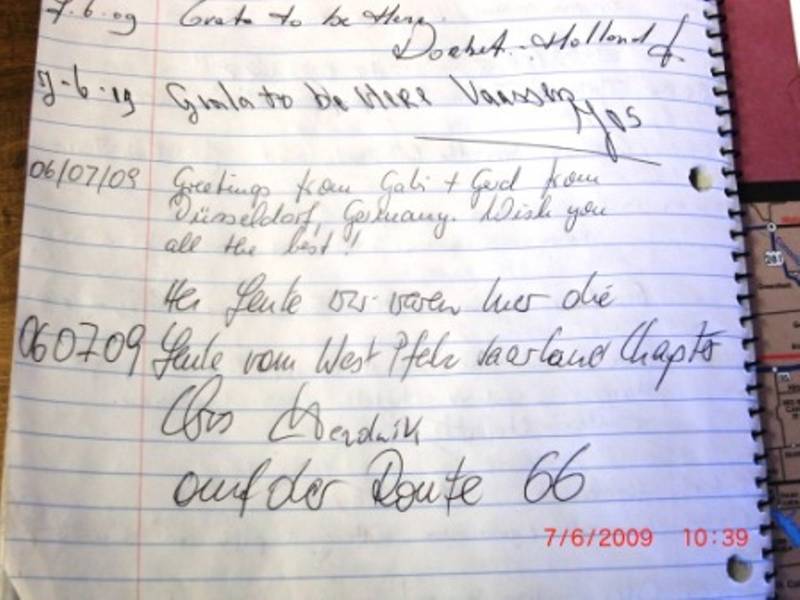 7.6.09 Grate to be Here.
Holland
to be Here Vaassen
Jos
06/07/09 Greetings from Gabi + Gerd from
Düsseldorf, Germany. Wish you
all the best!
Leute wir waren hier die
060709 Leute vom West Pfalz Saarland Chapter
auf der Route 66
7/6/2009 10:39
281